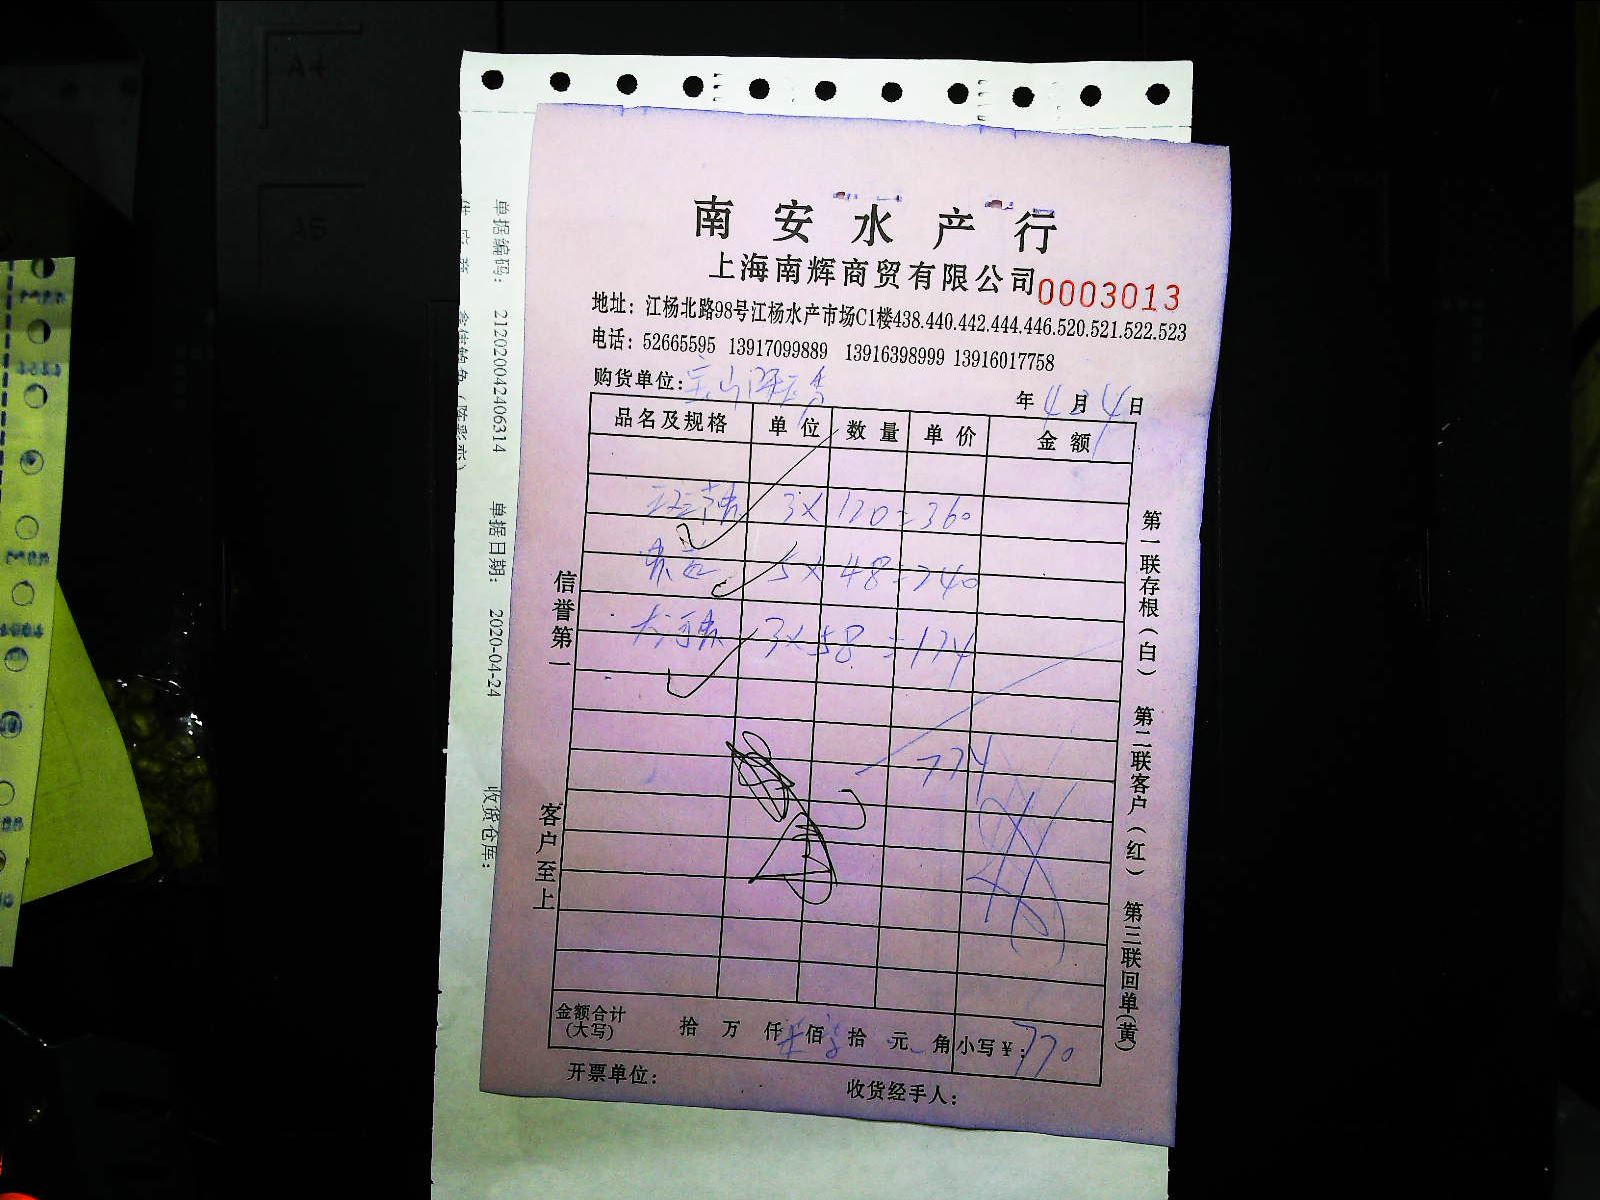 南安水产行
上海南辉商贸有限公司 0003013
地址：江杨北路98号江杨水产市场C1楼438.440.442.444.446.520.521.522.523
电话：52665595 13917099889 13916398999 13916017758
购货单位：宝山
年4月24日
品名及规格 单位 数量 单价 金额
3×120=360
5×48=240
3×58=174
774
金额合计(大写) 拾 万 仟 佰 拾 元 角 小写￥：770
开票单位： 收货经手人：
信誉第一
客户至上
第一联存根(白) 第二联客户(红) 第三联回单(黄)
单据编码： 212020042406314 单据日期： 2020-04-24 收货仓库：
A4
A5